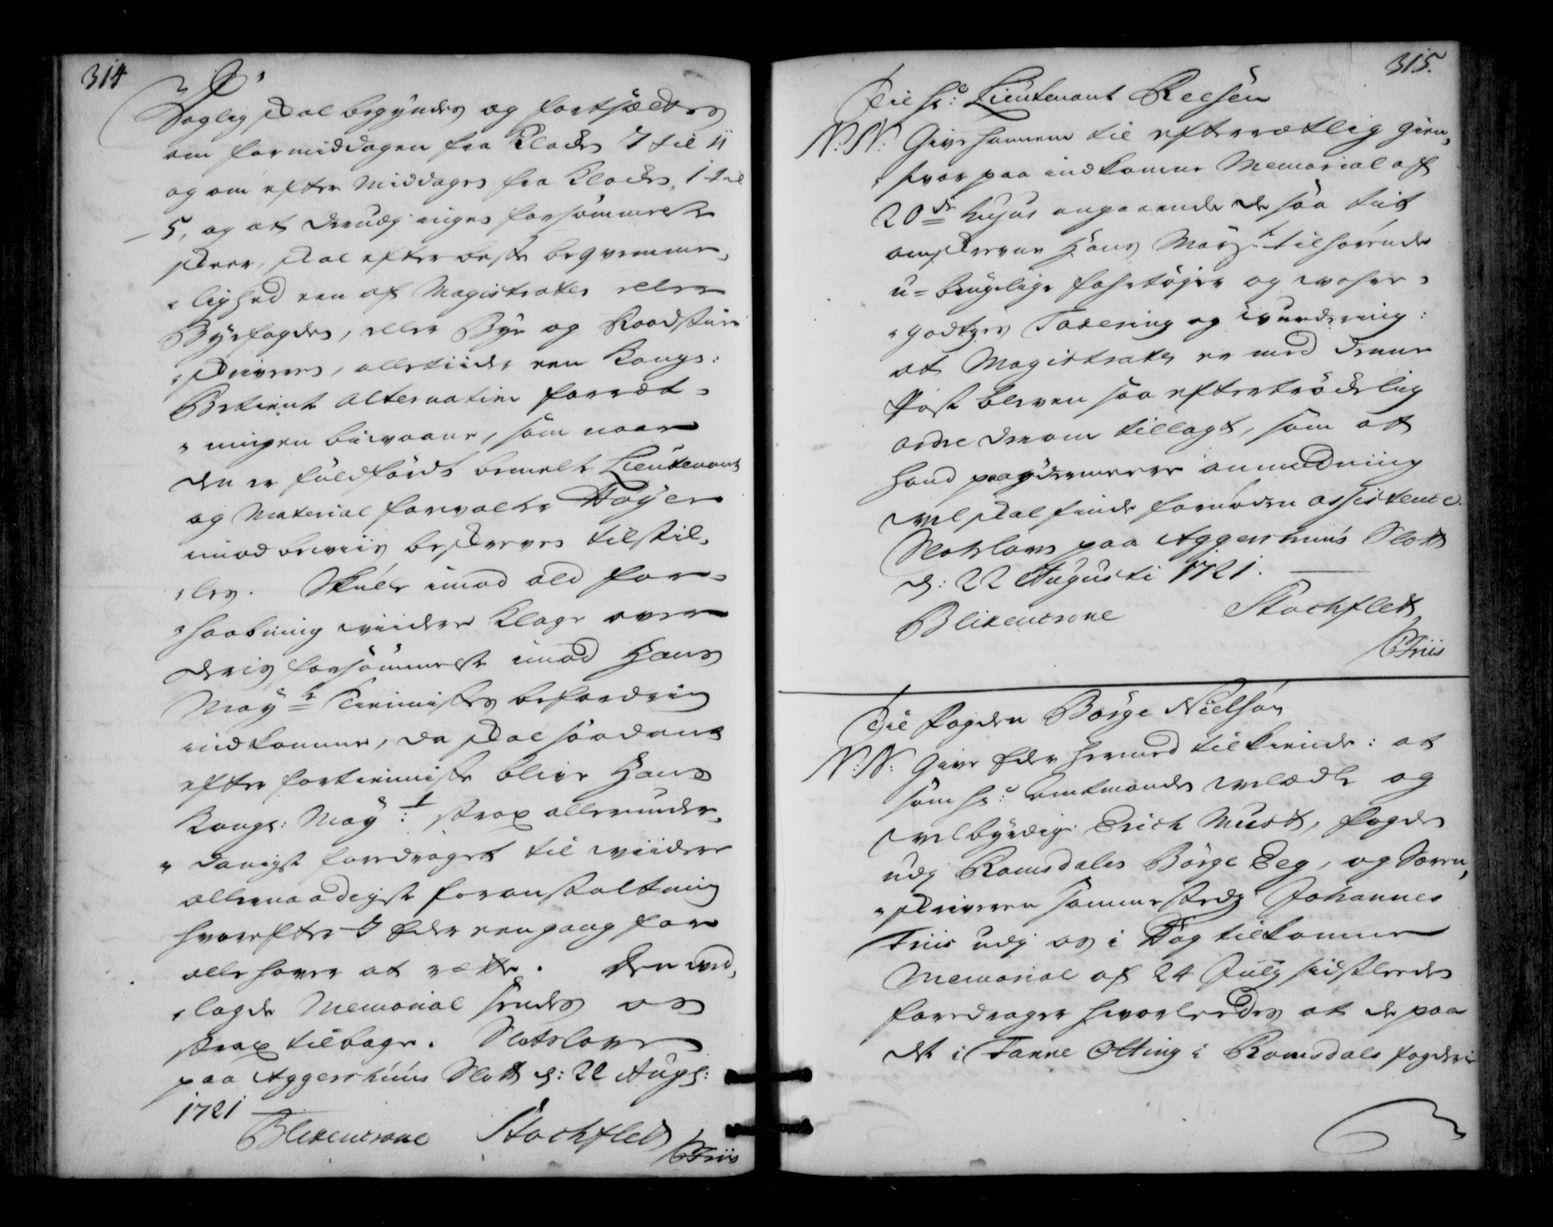 314
Daglig skal begyndes og fortsættes
om formiddagen fra Klocken 7 til 11
og om efter Middagen fra Klocken 1 til
5, og at derudj ingen forsømmelse
skeer, skal efter beste beqvemme-
lighed een af Magistraten eller
Byefogden, eller Bye og Raadstue
skriveren, alletiider een Kongl:
Betient alternative forræt-
ningen bievaane, som naar
den er fuldført bemelte Lieutenant
og Material forvalter Høyer
imod beviis beskreven tilstil-
les. Skulle imod ald for-
haabning viidere Klage over
deris forsømmelse imod Hans
May: tienistes befordring
indkomme, da skal saadant
efter fortienniste blive Hans
Kongl: May: strax allerunder-
danigst foredraget til viidere
allernaadigst foranstaltning
hvorefter I Eder eengang for
alle haver at rette. Den ind-
lagde Memorial sendes os
strax tilbage. Slotsloven
paa Aggershuus Slott d: 22 Aug:
1721
Blixencrone Stochfleth
Friis
315.
Til Hr: Lieutenant Reesen
N:N: Give hannem til efterretlig gien-
svar paa indkomne Memorial af
20de hujus angaaende de saa tit
omskrevne Hans May:t tilhørende
u-brugelige fahrtøyer og
godtzes Taxering og vurdering:
at Magistraten er med denne
Post bleven saa eftertrÿckelig
ordre derom tillagt, som at
hand paa ydermeere anmodning
vel skal finde fornøden assistence.
Slotsloven paa Aggershuus Slott
d: 22 Augusti 1721.
Blixencrone Stochfleth
Friis
Til Fogden Børge Nielsøn
N:N: Give Eder hermed tilkiende: at
som Hr: Amtmanden velædle og
velbyrdige Erich Must, Fogden
udj Romsdalen Børge Eeg, og Soren-
skriveren sammestedz Johannes
Friis udj os i Dag tilkomne
Memorial af 24 July sidstleeden
foredrager hvorleedes at de paa
det i Tanne Otting i Romsdals fogderie